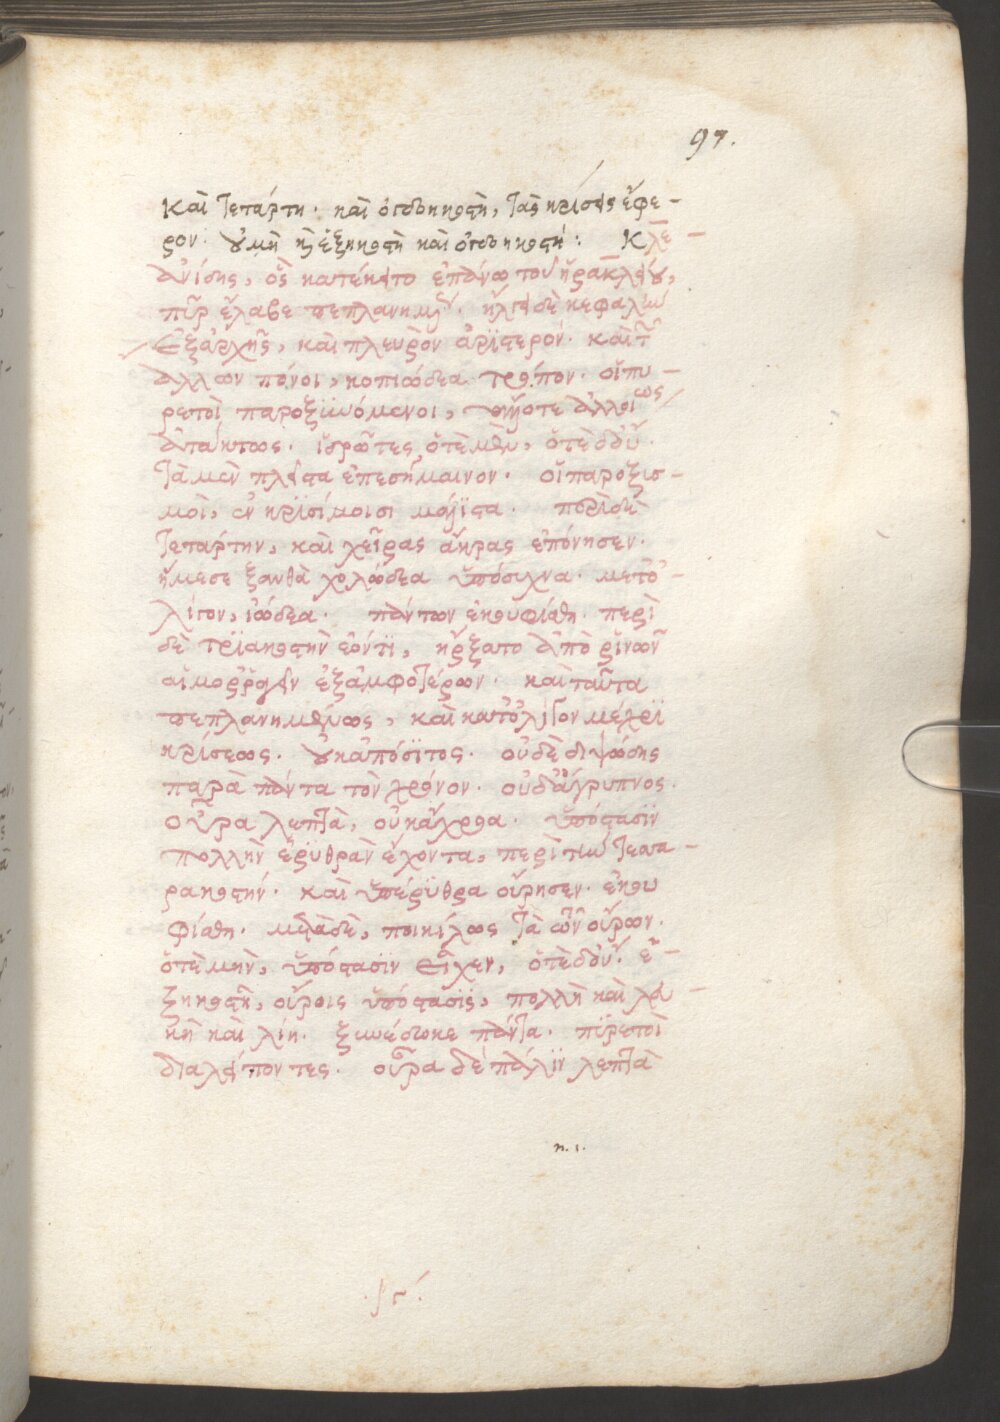 97.
καὶ τετάρτη· καὶ ὀγδοηκοστὴ, τὰς κρίσεις ἔφε-
ρον· οὐ μὴ ἡ ἑξηκοστὴ καὶ ὀγδοηκοστή: Κλε-
ἀνίσης, ὃς κατέκειτο ἐπάνω τοῦ ἡρακλείου,
πῦρ ἔλαβε πεπλανημένον· ἤλγει δὲ κεφαλὴν
ἐξ ἀρχῆς, καὶ πλευρὸν ἀρϊστερόν· καὶ τῶν
ἄλλων πόνοι, κοπιώδεα τρόπον· οἱ πυ-
ρετοὶ παροξϋνόμενοι, ἄλλοτε ἀλλοίως
ἀτάκτως· ἱδρῶτες ὁτὲ μὲν, ὁτὲ δ' οὔ·
τὰ μὲν πλεῖστα ἐπεσήμαινον· οἱ παροξισ-
μοὶ, ἐν κρϊσίμοισι μάλϊστα· περὶ δὲ
τετάρτην, καὶ χεῖρας ἄκρας ἐπόνησεν·
ἤμεσε ξανθὰ χολώδεα ὑπόσιχνα· μετ' ὀ-
λίγον, ἰώδεα· πάντων ἐκουφίσθη· περὶ
δὲ τρϊακοστὴν ἐόντϊ, ἤρξατο ἀπὸ ῥϊνῶν
αἱμοῤῥαγεῖν ἐξ ἀμφοτέρων· καὶ ταῦτα
πεπλανημένως, καὶ κατ' ὀλίγον μέχρϊ
κρίσεως· οὐκ ἀπόσϊτος· οὐδὲ διψώδης
παρὰ πάντα τὸν χρόνον· οὐδ' ἄγρυπνος·
οὖρα λεπτὰ, οὐκ ἄχροα· ὑπόστασϊν
πολλὴν ἐρϋθρὰν ἔχοντα, περὶ τὴν τεσσα-
ρακοστήν· καὶ ὑπέρϋθρα οὔρησεν· ἐκου
φίσθη· μετὰ δὲ, ποικίλως τὰ τῶν οὔρων·
ὁτὲ μὴν, ὑπόστασϊν εἶχεν, ὁτὲ δ' οὔ· ἑ-
ξηκοστῇ, οὔροις ὑπόστασϊς, πολλὴ καὶ λευ-
κὴ καὶ λείη· ξυνέδωκε πάντα· πϋρετοὶ
διαλείποντες· οὖρα δὲ πάλϊν λεπτὰ